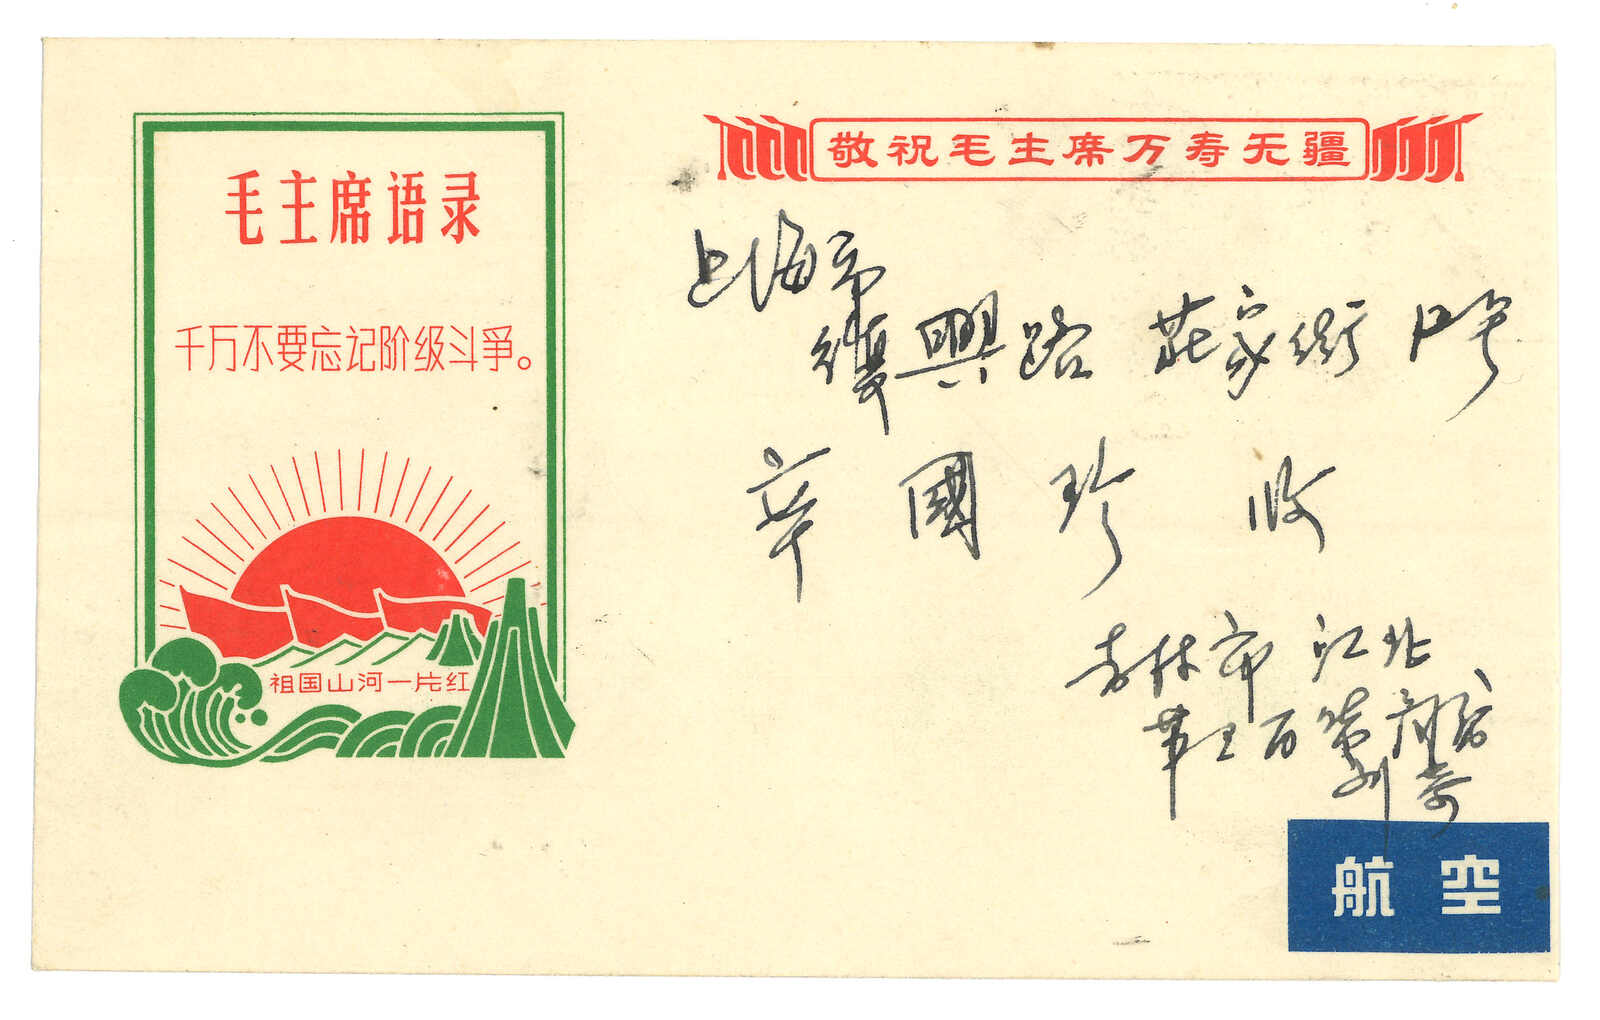 敬祝毛主席万寿无疆
毛主席语录
千万不要忘记阶级斗争。
祖国山河一片红
上海市
復興路 莊家街
國珍 收
吉林市 江北
第 百货
刘寄
航空